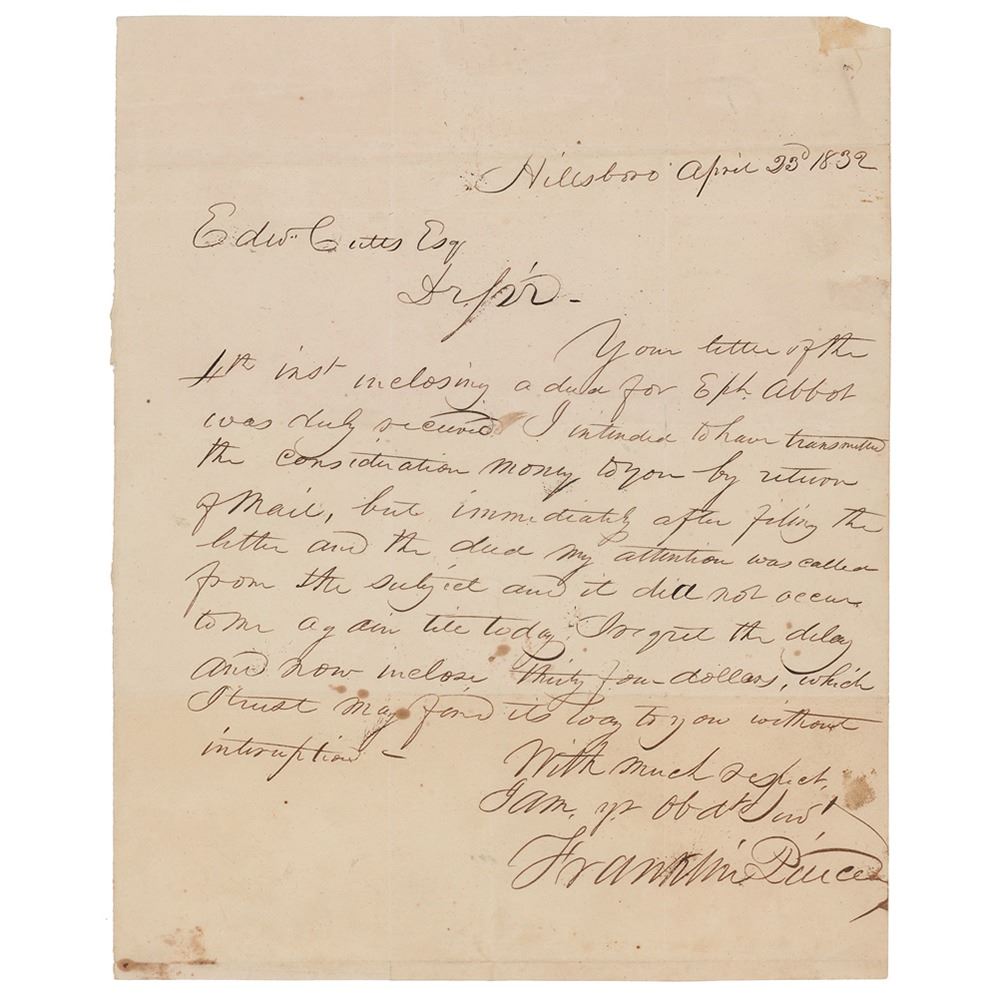 Hillsboro' April 23d 1832
Edwd. Cutts Esq
Dr Sir -
Your letter of the
4th inst inclosing a deed for Eph. Abbot
was duly received I intended to have transmitted
the consideration money to you by return
of Mail, but immediately after filing the
letter and the deed my attention was called
from the subject and it did not occur
to me again till today. I regret the delay
and now inclose thirty four dollars, which
I trust may find its way to you without
interuption -
With much respect,
I am, yr Obdt Servt
Franklin Pierce